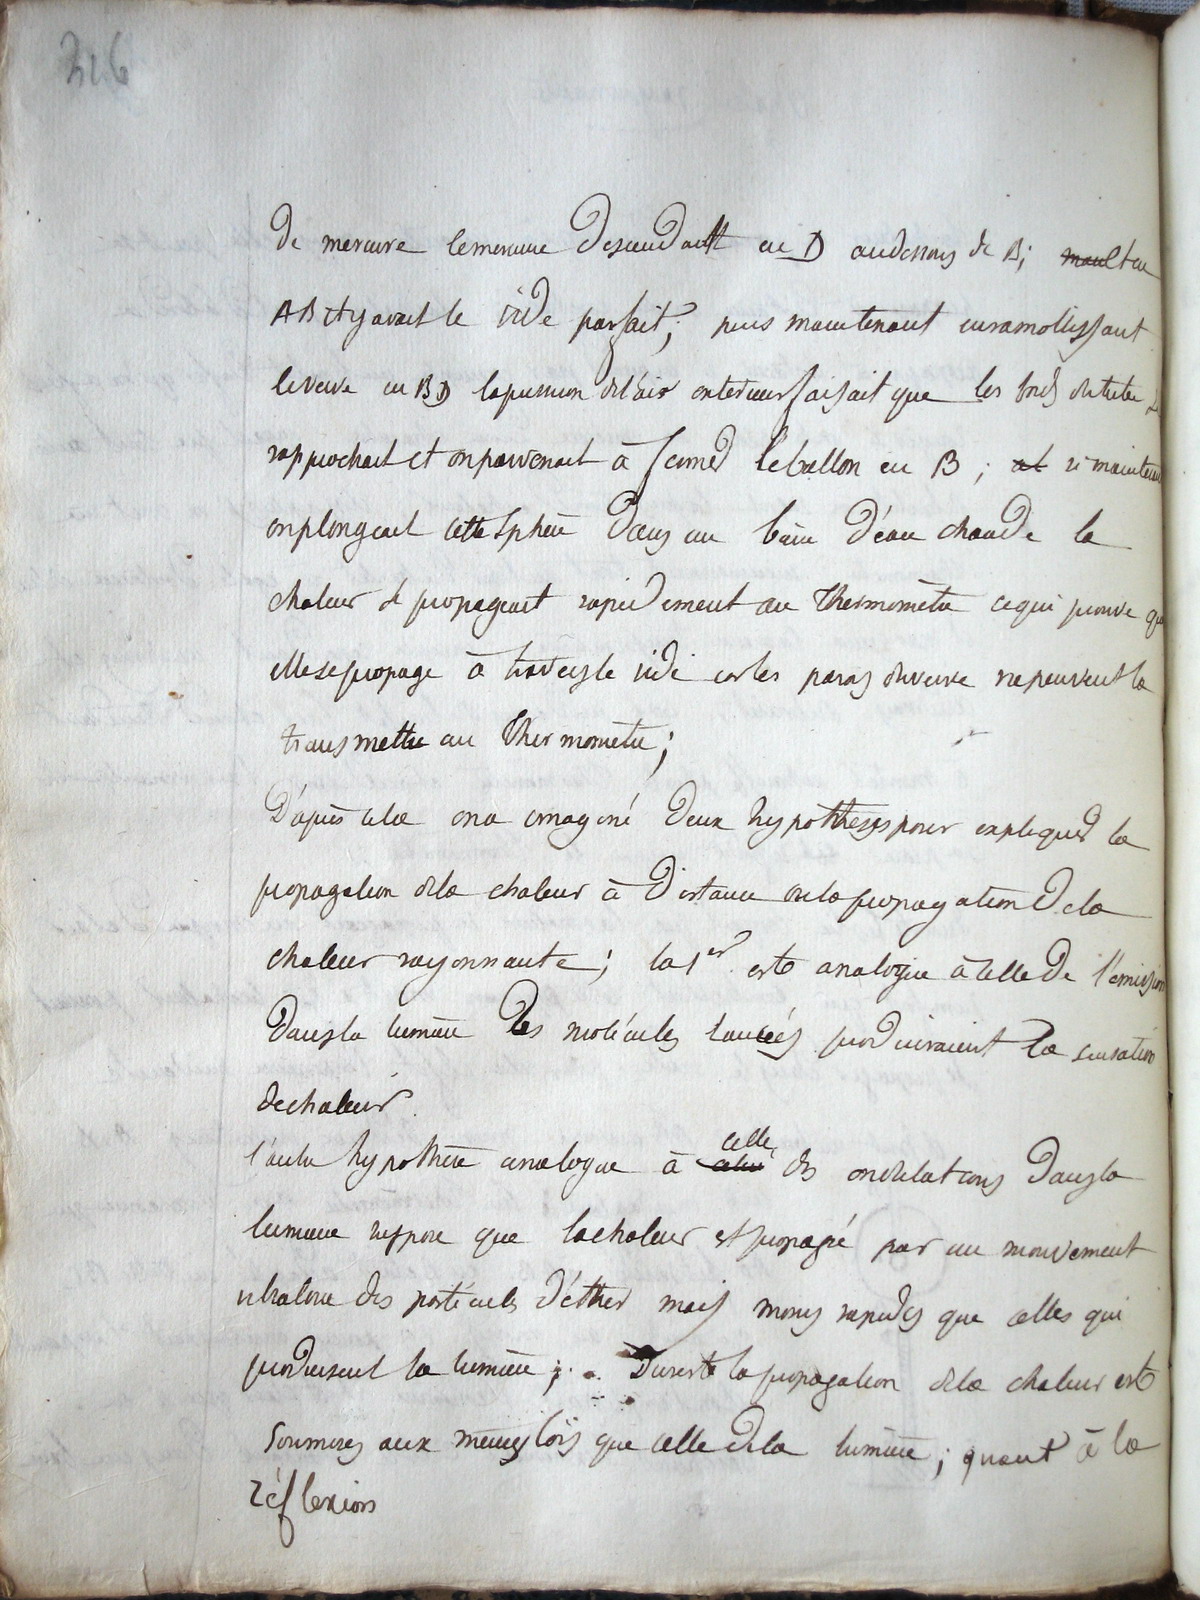 216
de mercure le mercure descendait en D au dessous de B; en
AB il y avait le vide parfait; puis maintenant en ramollissant
le verre en BD la pression de l'air exterieur faisait que les du tube se
rapprochait et on parvenait à fermer le ballon en B; si maintenant
on plongeait cette sphere dans un bain d'eau chaude la
chaleur se propageait rapidement au Thermomètre ce qui prouve que
elle se propage à travers le vide car les parois du verre ne peuvent la
transmettre au Thermometre;
D'après cela on a imaginé deux hypothèses pour expliquer la
propagation de la chaleur à distance ou la propagation de la
chaleur rayonnante; la 1er est analogue à celle de l'emission
dans la lumiere les molécules lancées produiraient la sensation
de chaleur.
l'autre hypothese analogue à celle des ondulations dans la
lumiere suppose que la chaleur est propagé par un mouvement
vibratoire des particules d'éther mais moins rapides que celles qui
produisent la lumiere; Du reste la propagation de la chaleur est
soumises aux mêmes lois que celle de la lumiere; quant à la
réflexions